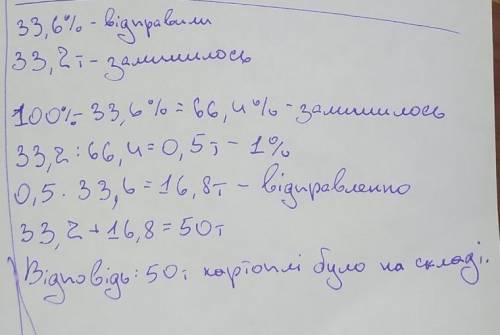 33,6% - відправили
33,2т - залишилось
100% - 33,6% = 66,4% - залишилось
33,2 : 66,4 = 0,5т - 1%
0,5 · 33,6 = 16,8т - відправленно
33,2 + 16,8 = 50т
Відповідь: 50т картоплі було на складі.